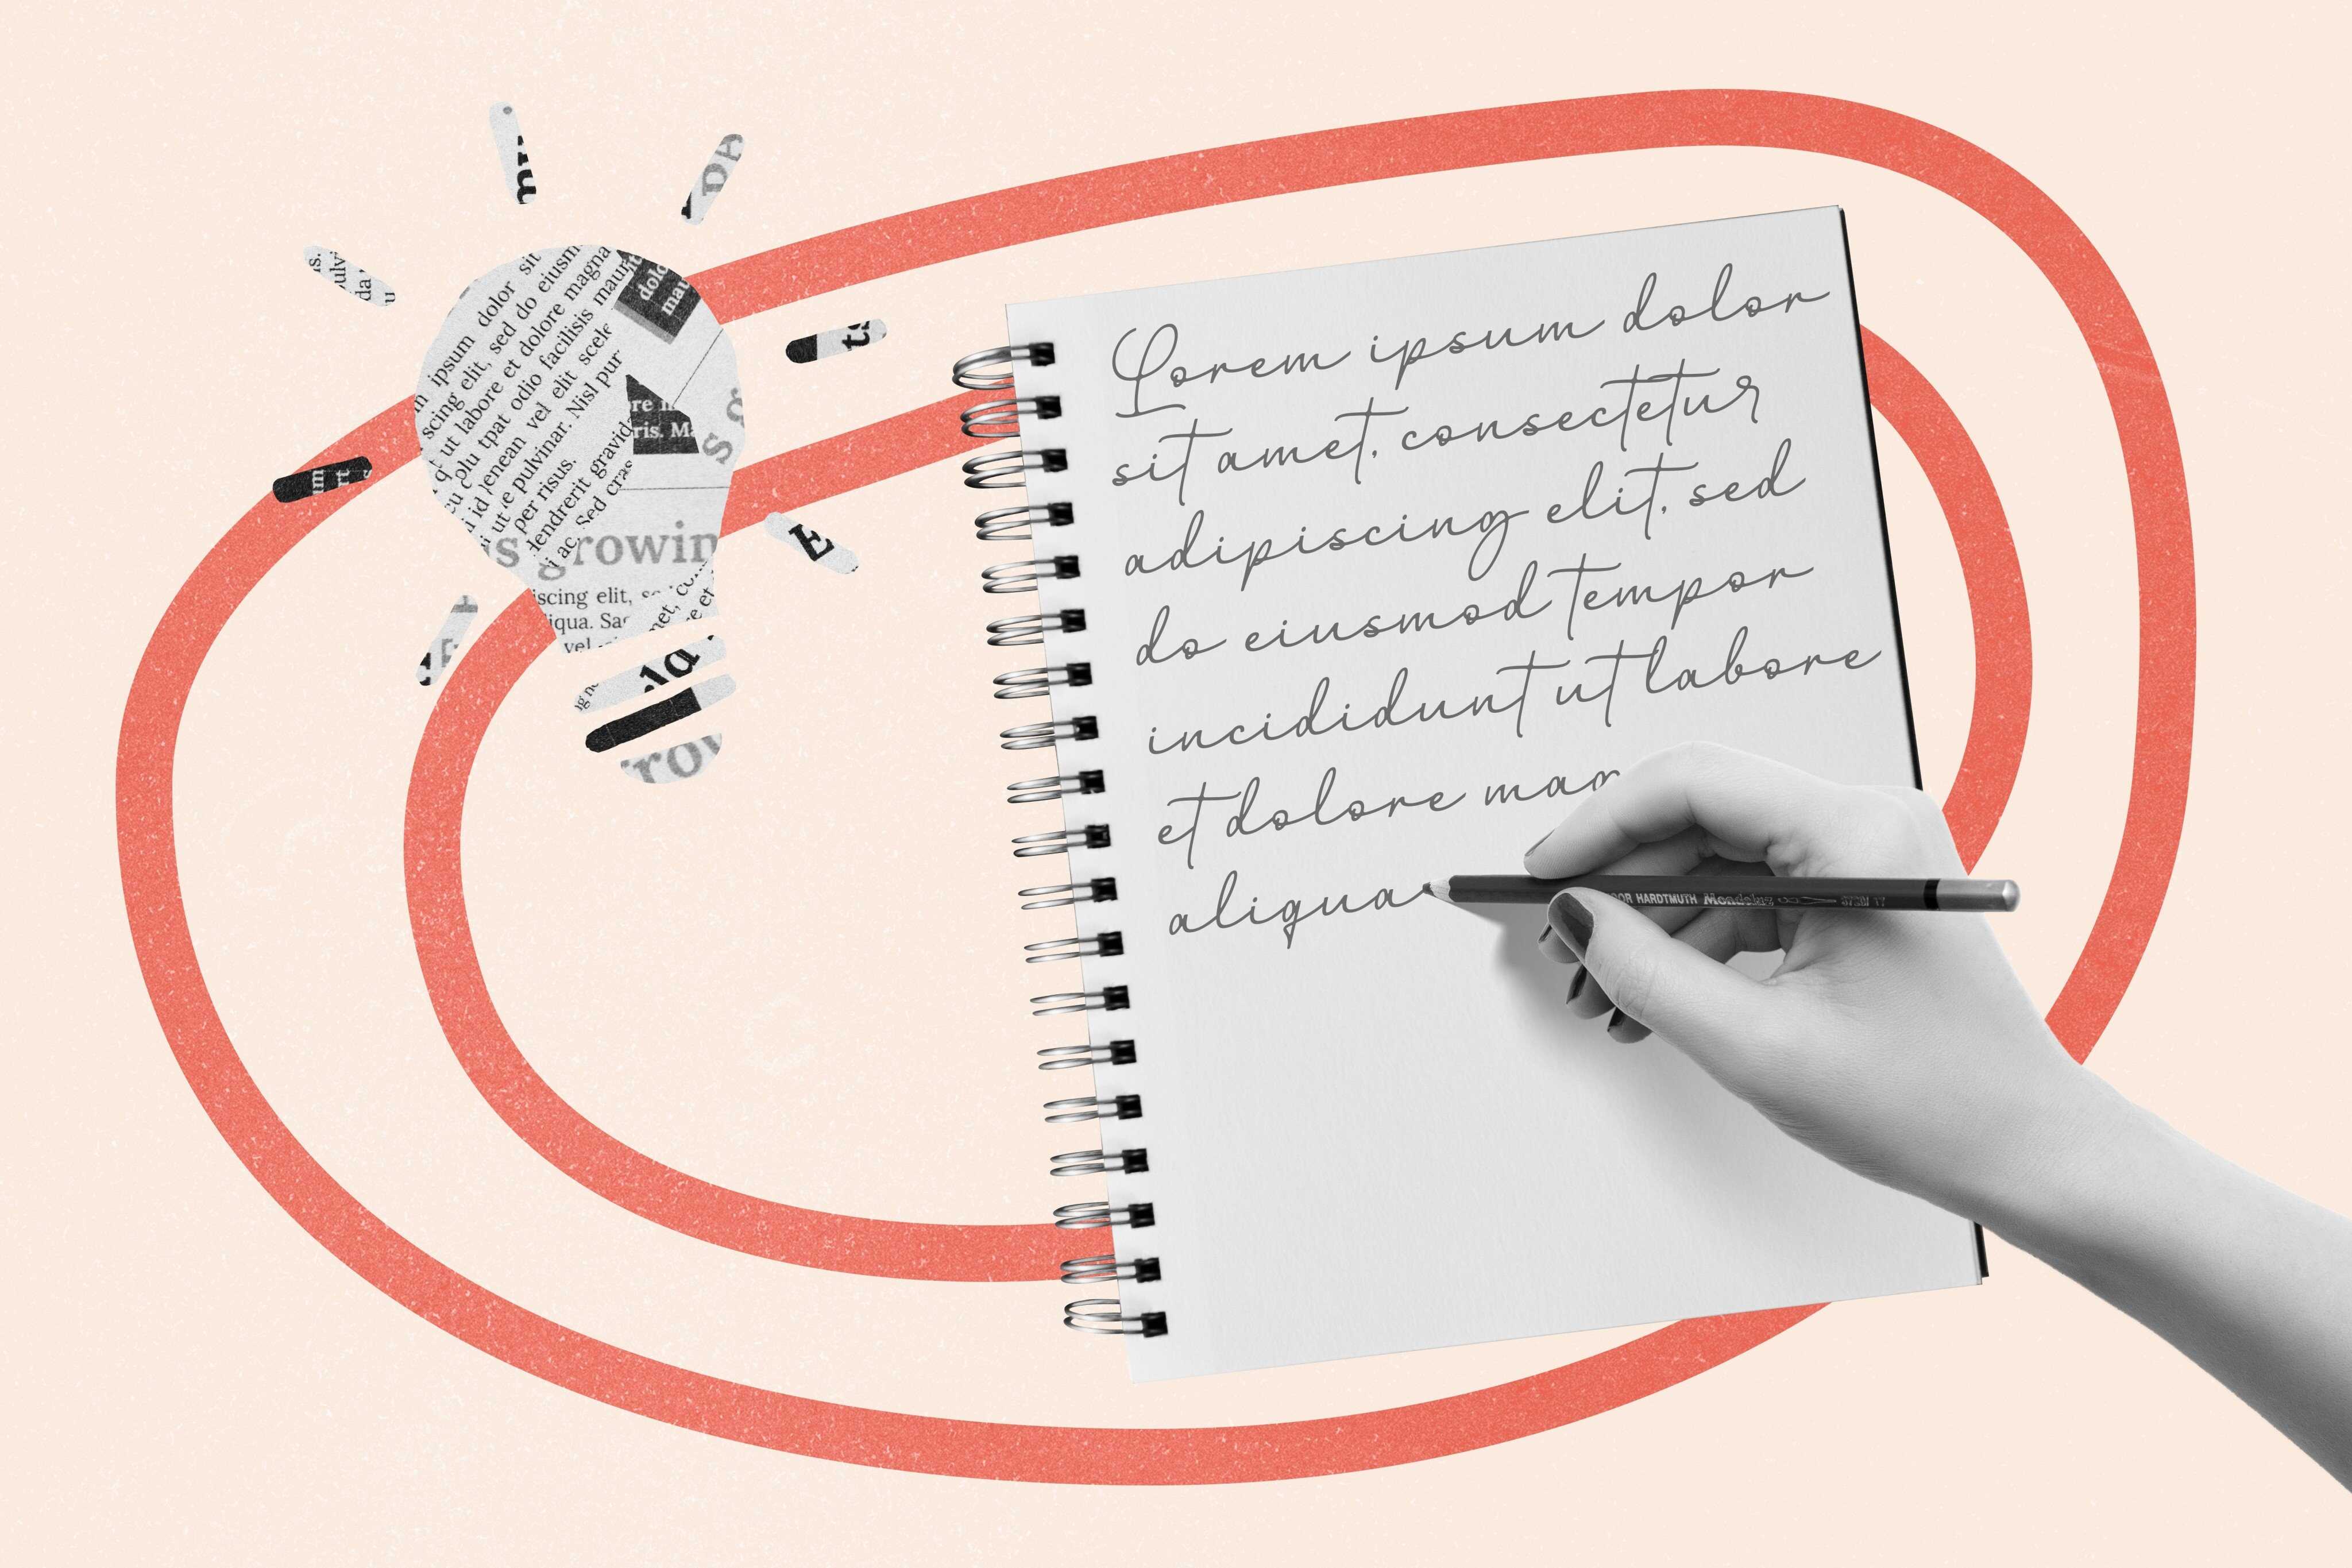 ipsum dolor sit
scing elit, sed do eiusm
ut labore et dolore magna
tpat odio facilisis mauri
enean vel elit scele
pulvinar. Nisl pur
per risus.
endrerit gravid
Sed cras
dolo
mau
re
ris. M
s g
s growin
iscing elit,
iqua.
vel
met,
et
E
Lorem ipsum dolor
sit amet, consectetur
adipiscing elit, sed
do eiusmod tempor
incididunt ut labore
et dolore mag
aliqua
OR HARDTMUTH Mondeluz